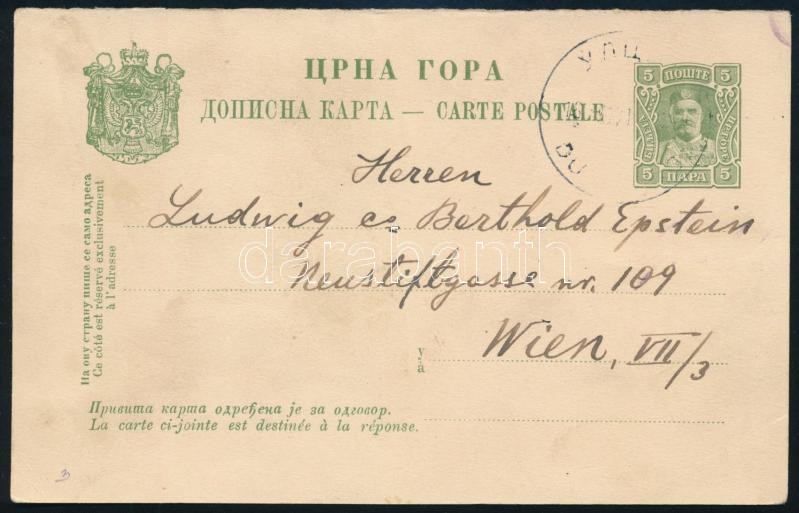 ЦРНА ГОРА
ДОПИСНА КАРТА — CARTE POSTALE
УЛЦ
5 ПОШТЕ 5
5 ПАРА 5
Herren
Ludwig & Berthold Epstein
Neustiftgasse nr. 109
у
à
Wien, VII/3
На ову страну пише се само адреса
Ce côté est réservé exclusivement
à l'adresse
Привита карта одређена је за одговор.
La carte ci-jointe est destinée à la réponse.
3
darabanth